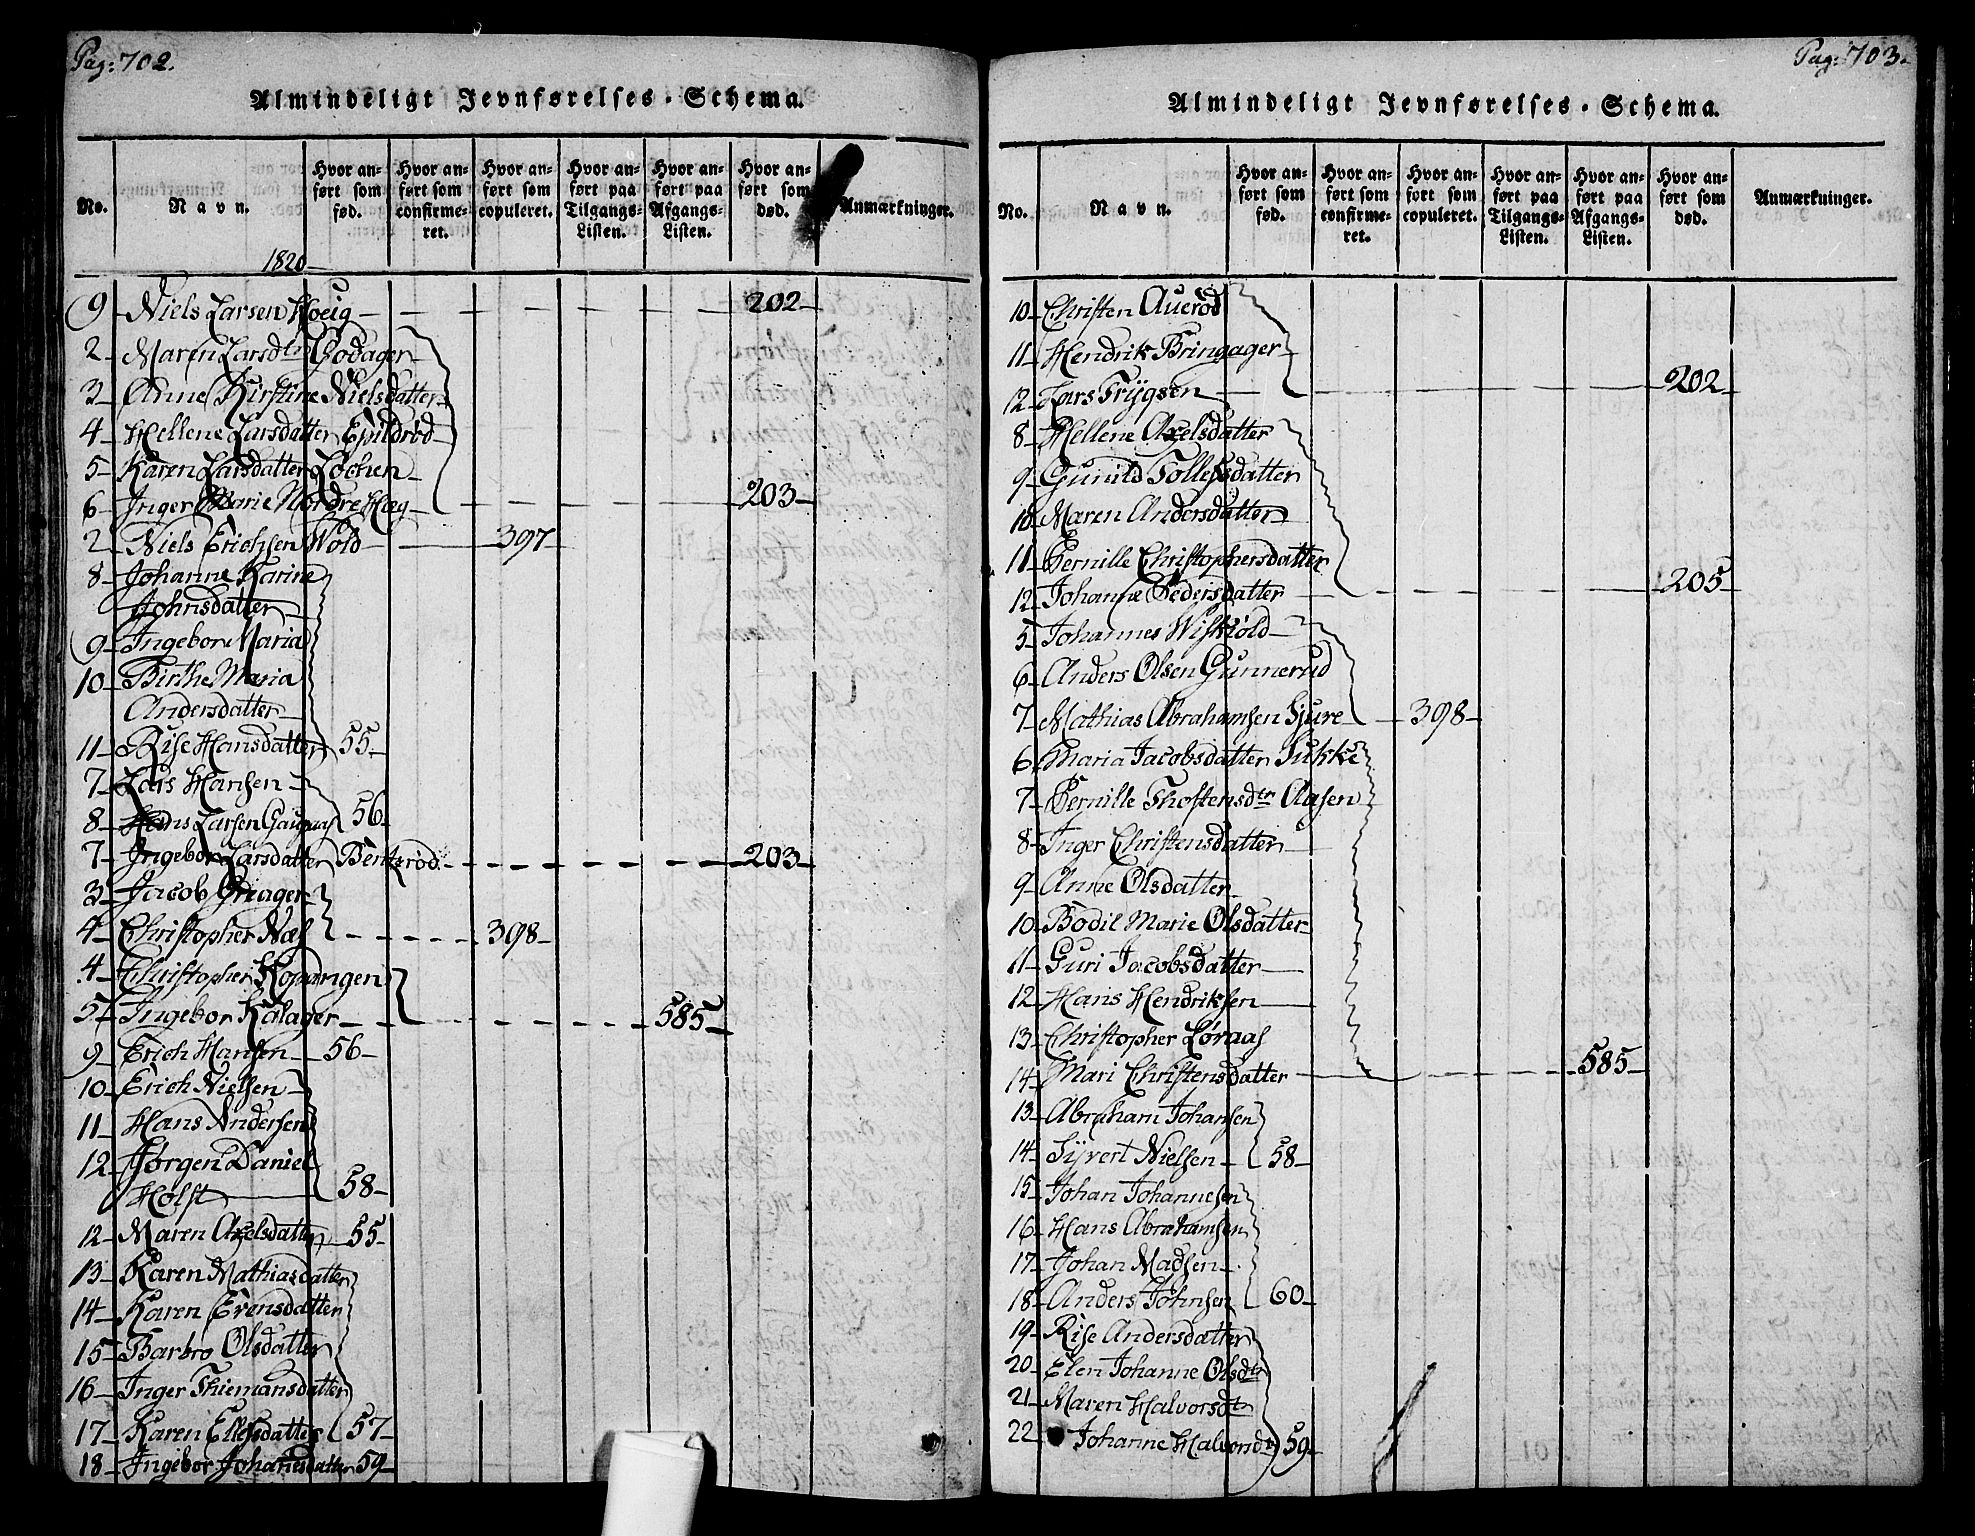 Pag: 702.
Almindeligt Jevnførelses-Schema.
No. Navn. Hvor anført som fød. Hvor anført som confirmeret. Hvor anført som copuleret. Hvor anført paa Tilgangs-Listen. Hvor anført paa Afgangs-Listen. Hvor anført som død. Anmærkninger.
1820
9 Niels Larsen Hoeig 202
2 Maren Larsdtr Godager
3 Anne Kirstine Nielsdatter
4 Hellene Larsdatter
5 Karen Larsdatter Løchen
6 Inger Marie Nordre Hæg 203
2 Niels Erichsen Wold 397
8 Johanne Karine
Johnsdatter
9 Ingebor Maria
10 Birthe Maria
Andersdatter
11 Rise Hansdatter 55
7 Lars Hansen
8 Hans Larsen 56
7 Ingebor Larsdatter Bentzrød 203
3 Jacob Griager
4 Christopher Næs 398
4 Christopher Kopdrngen
5 Ingebor Kalager 585
9 Erich Hansen 56
10 Erich Nielsen
11 Hans Andersen
12 Jørgen Daniel
Holst 58
12 Maren Axelsdatter 55
13 Karen Mathiasdatter
14 Karen Evensdatter
15 Barbro Olsdatter
16 Inger Thiemansdatter
17 Karen Ellefsdatter 57
18 Ingebor Johanesdatter 59
Pag: 703.
Almindeligt Jevnførelses-Schema.
No. Navn. Hvor anført som fød. Hvor anført som confirmeret. Hvor anført som copuleret. Hvor anført paa Tilgangs-Listen. Hvor anført paa Afgangs-Listen. Hvor anført som død. Anmærkninger.
10 Christen Auerød
11 Hendrik Bringager
12 Lars Trygsen 202
8 Hellene Axelsdatter
9 Gunild Tollefsdatter
10 Maren Andersdatter
11 Pernille Christophersdatter
12 Johanne Pedersdatter 205
5 Johannes Wiskiold
6 Anders Olsen Gunnerud
7 Mathias Abrahamsen Gjure 398
6 Maria Jacobsdatter Sukke
7 Pernille Thostensdtr Aasen
8 Inger Christensdatter
9 Anne Olsdatter
10 Bodil Marie Olsdatter
11 Guri Jacobsdatter
12 Hans Hendriksen
13 Christopher Løraas
14 Mari Christensdatter 585
13 Abraham Johansen
14 Syvert Nielsen 58
15 Johan Johannesen
16 Hans Abrahamsen
17 Johan Madsen
18 Anders Johnsen 60
19 Rise Andersdatter
20 Elen Johanne Olsdtr
21 Maren Halvorsdtr
22 Johanne Halvorsdtr 59